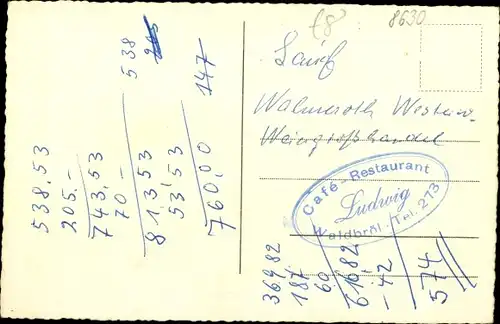 8630
538
147
538,53
205.-
743,53
70-
81353
53,53
760,00
Walmeroth Westerw.
Weingroßhandel
Café - Restaurant
Ludwig
Waldbröl. Tel. 273
36982
187.
60
61082
- 42
574